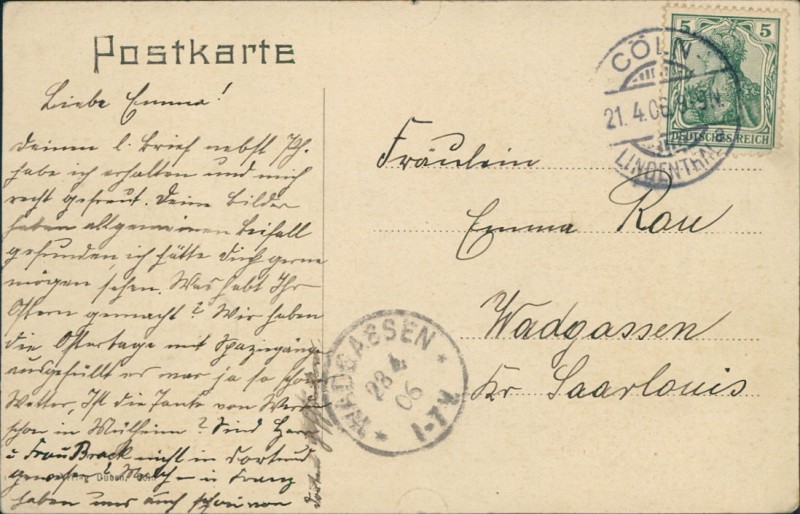 Postkarte
Liebe Emma!
Deinen l. Brief nebst Ph.
habe ich erhalten und mich
recht gefreut. Deine Bilder
haben allgemeinen Beifall
gefunden ich hätte dich gerne
mögen sehen. Was habt Ihr
Ostern gemacht? Wir haben
die Ostertage mit Spaziergänge
ausgefüllt es war ja so schön
Wetter, Ist die Tante von
schon in Mülheim? Sind Herr
u Frau Brack nicht in Dortmund
gewesen? in Franz
haben uns auch schon von
CÖLN
21. 4. 06
LINDENTHAL
5 5
DEUTSCHES REICH
Fräulein
Emma Rau
Wadgassen
Kr Saarlouis
WADGASSEN
06